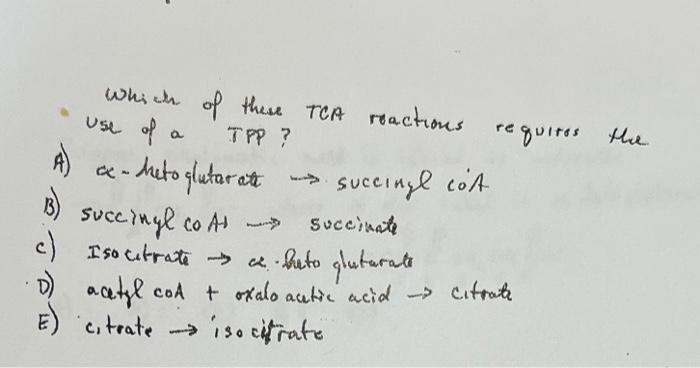 Which of these TCA reactions requires the
use of a TPP?
A) α-ketoglutarate → succinyl coA
B) succinyl coA → succinate
C) Isocitrate → α-keto glutarate
D) acetyl coA + oxaloacetic acid → citrate
E) citrate → isocitrate